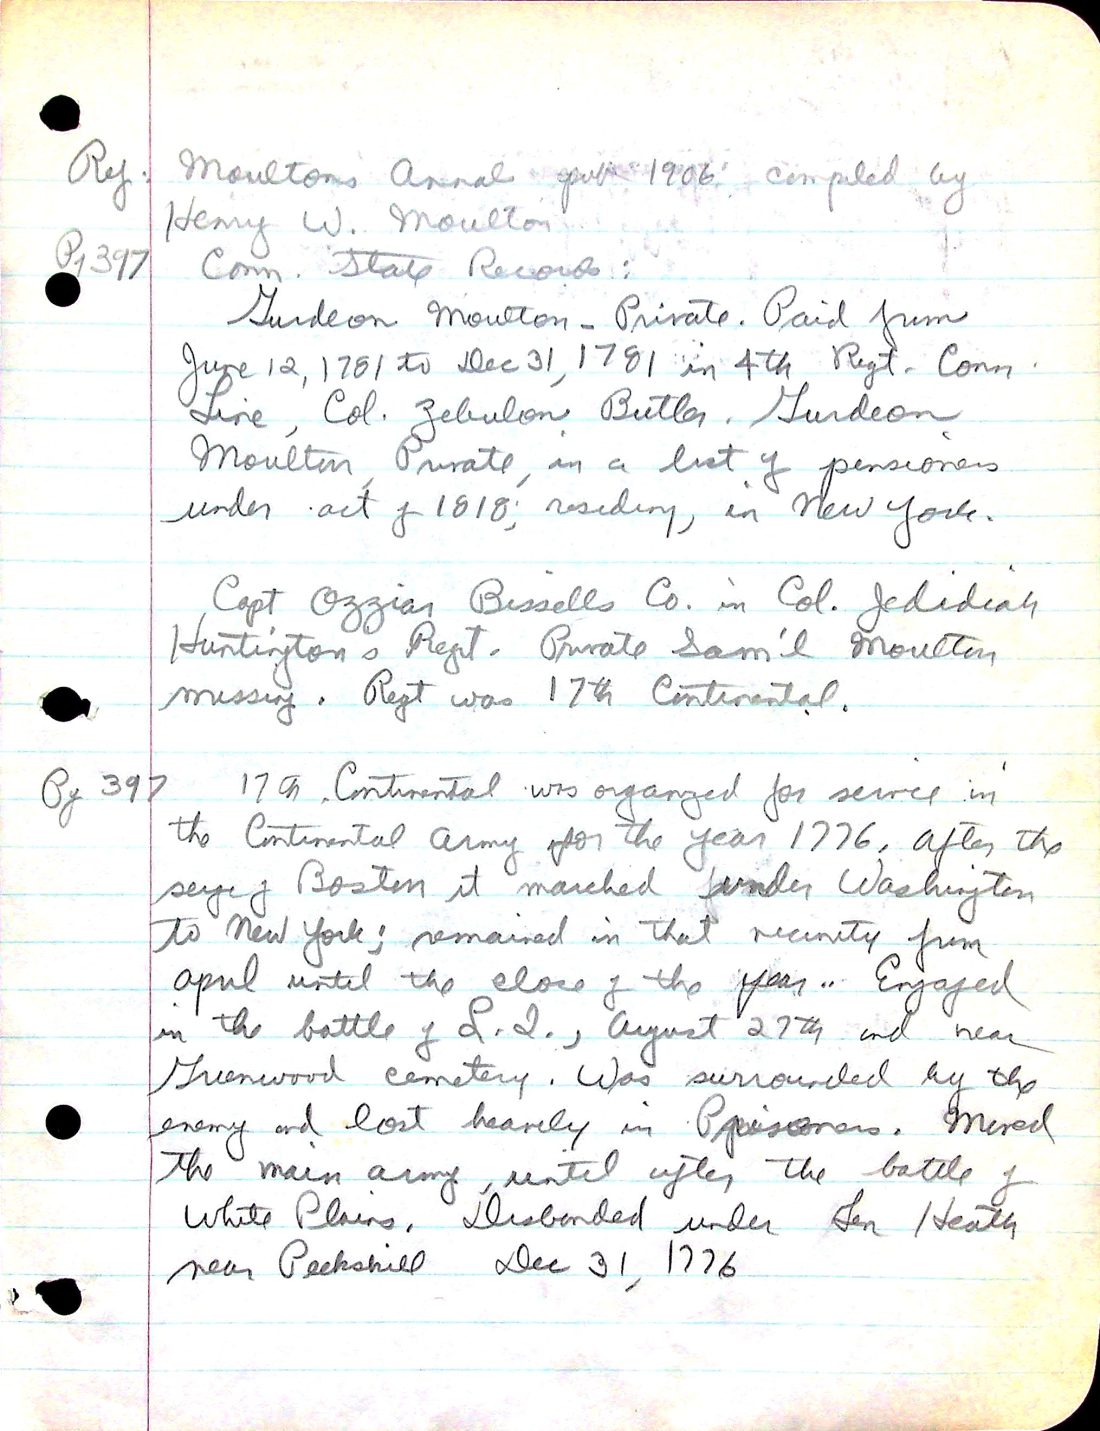 Ref. Moultons Annals pub 1906 compiled by
Henry W. Moulton
Pg 397 Conn. State Records:
Gurdeon Moulton - Private. Paid from
June 12, 1781 to Dec 31, 1781 in 4th Regt. Conn.
Line, Col. Zebulon Butler. Gurdeon
Moulton, Private, in a list of pensioners
under act of 1818, residing, in New York.
Capt Ozzias Bissells Co. in Col. Jedidiah
Huntingtons Regt. Private Sam'l Moulton
missing. Regt was 17th Continental.
Pg 397 17th Continental was organized for service in
the Continental Army for the year 1776. After the
seige of Boston it marched under Washington
to New York; remained in that vicinity from
April until the close of the year.. Engaged
in the battle of L.I., August 27th and near
Greenwood cemetery. Was surrounded by the
enemy and lost heavily in Prisoners. Moved
the main army, until after the battle of
White Plains. Disbanded under Gen Heath
near Peekskill Dec 31, 1776